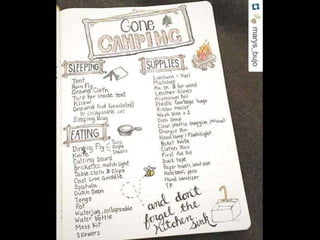 Gone
CAMPING
SLEEPING
Tent
Rain Fly
Ground Cloth
Tarp for inside tent
Pillow
Ground Pad (insulated)
or collapsable cot
Sleeping Bag
EATING
Dining Fly
Knife
Cutting board
Briquettes, match light
Table Cloth & Clips
Cast Iron Griddle
Spatula
Dutch Oven
Tongs
Pot
Water jug, collapsable
Water bottle
Mess Kit
Skewers
Fork
Knife
Spoons
SUPPLIES
Lantern + fuel
Matches
Ax or, & for wood
Leather Gloves
Aluminum Foil
Plastic Garbage bags
Rubber Mallet
Wash bins x 2
Dish soap
Clear plastic baggies
Sharpie Pen
Head lamp / Flashlight
Pocket Knife
Clothes Pins
First Aid Kit
Duck tape
Paper towels, and soap
Notebook, pens
Hand sanitizer
TP
and don't
forget the
Kitchen Sink
marys_bujo